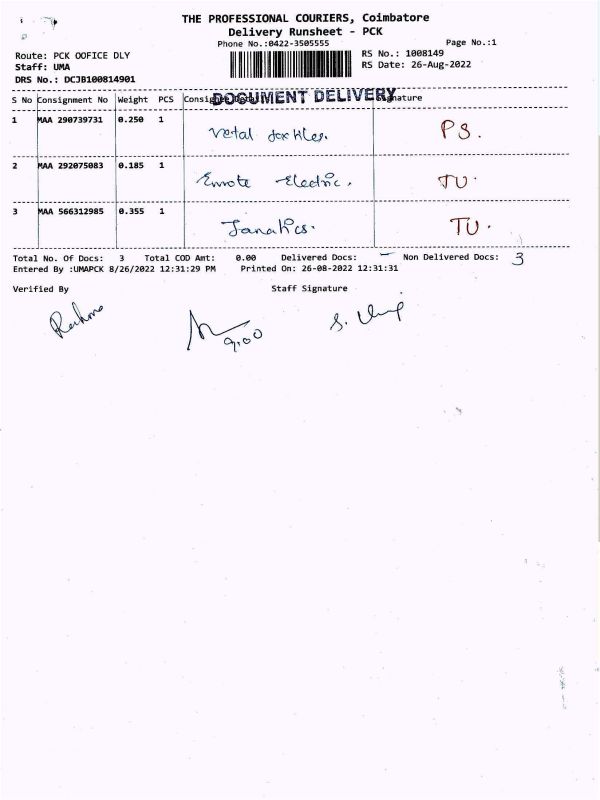 THE PROFESSIONAL COURIERS, Coimbatore
Delivery Runsheet - PCK
Phone No.:0422-3505555 Page No.:1
Route: PCK OOFICE DLY RS No.: 1008149
Staff: UMA RS Date: 26-Aug-2022
DRS No.: DCJB100814901
DOCUMENT DELIVERY
S No Consignment No Weight PCS
1 MAA 290739731 0.250 1 PS.
2 MAA 292075083 0.185 1 Electric. TU.
3 MAA 566312985 0.355 1 TU.
Total No. Of Docs: 3 Total COD Amt: 0.00 Delivered Docs: - Non Delivered Docs: 3
Entered By :UMAPCK 8/26/2022 12:31:29 PM Printed On: 26-08-2022 12:31:31
Verified By Staff Signature
9.00